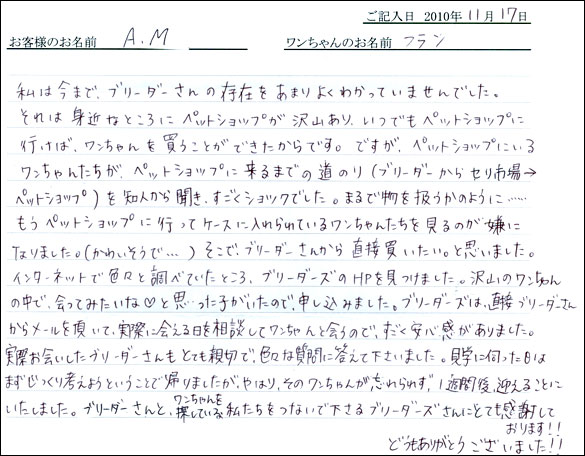 ご記入日 2010年11月17日
お客様のお名前 A.M ワンちゃんのお名前 フラン
私は今まで、ブリーダーさんの存在をあまりよくわかっていませんでした。
それは身近なところにペットショップが沢山あり、いつでもペットショップに
行けば、ワンちゃんを買うことができたからです。ですが、ペットショップにいる
ワンちゃんたちが、ペットショップに来るまでの道のり(ブリーダーからセリ市場→
ペットショップ)を知人から聞き、すごくショックでした。まるで物を扱うかのように……
もうペットショップに行ってケースに入れられているワンちゃんたちを見るのが嫌に
なりました。(かわいそうで…)そこで、ブリーダーさんから直接買いたい。と思いました。
インターネットで色々と調べていたところ、ブリーダーズのHPを見つけました。沢山のワンちゃん
の中で、会ってみたいな♡と思った子がいたので、申し込みました。ブリーダーズは、直接ブリーダーさん
からメールを頂いて、実際に会える日を相談してワンちゃんと会うので、すごく安心感がありました。
実際お会いしたブリーダーさんもとても親切で、色々な質問に答えて下さいました。見学に伺った日は
まずじっくり考えようということで帰りましたが、やはり、そのワンちゃんが忘れられず、1週間後、迎えることに
いたしました。ブリーダーさんと、ワンちゃんを探している私たちをつないで下さるブリーダーズさんにとても感謝して
おります!!
どうもありがとうございました!!